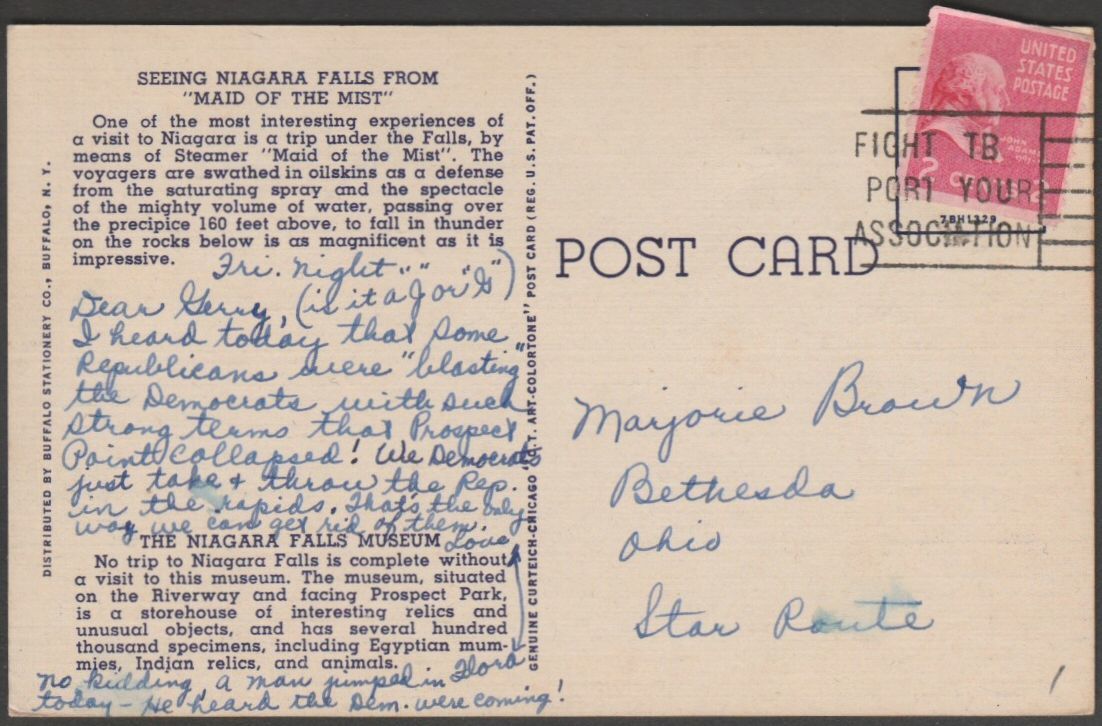 SEEING NIAGARA FALLS FROM
"MAID OF THE MIST"
One of the most interesting experiences of
a visit to Niagara is a trip under the Falls, by
means of Steamer "Maid of the Mist". The
voyagers are swathed in oilskins as a defense
from the saturating spray and the spectacle
of the mighty volume of water, passing over
the precipice 160 feet above, to fall in thunder
on the rocks below is as magnificent as it is
impressive.
Fri. night
Dear Gerry, (is it a "J" or "G")
I heard today that some
Republicans were "blasting"
the Democrats with such
strong terms that Prospect
Point collapsed! We Democrats
just take & throw the Rep.
in the rapids. That's the only
way we can get rid of them.
Love
THE NIAGARA FALLS MUSEUM
No trip to Niagara Falls is complete without
a visit to this museum. The museum, situated
on the Riverway and facing Prospect Park,
is a storehouse of interesting relics and
unusual objects, and has several hundred
thousand specimens, including Egyptian mum-
mies, Indian relics, and animals.
Flora
no kidding, a man jumped in
today - He heard the Dem. were coming!
DISTRIBUTED BY BUFFALO STATIONERY CO., BUFFALO, N. Y.
GENUINE CURTEICH-CHICAGO "C.T. ART-COLORTONE" POST CARD (REG. U.S. PAT. OFF.)
POST CARD
UNITED
STATES
POSTAGE
JOHN
ADAMS
2
7BH1329
FIGHT TB
PORT YOUR
ASSOCIATION
Marjorie Brown
Bethesda
Ohio
Star Route